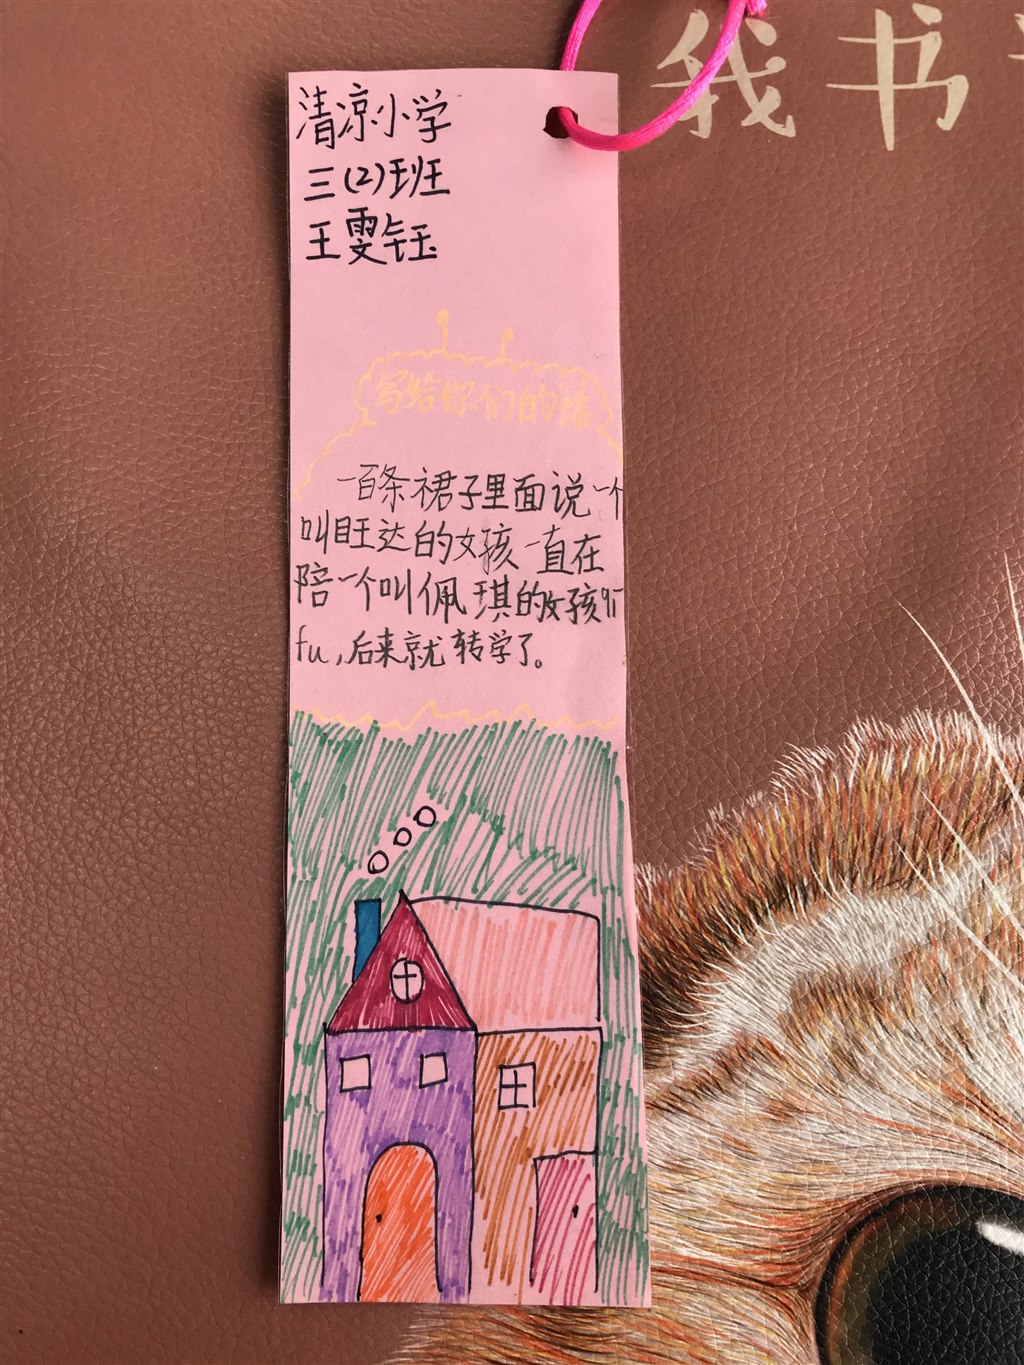 我书
清凉小学
三(2)班
王雯钰
写给你们的话
一百条裙子里面说一个
叫旺达的女孩一直在
陪一个叫佩琪的女孩
fu,后来就转学了。